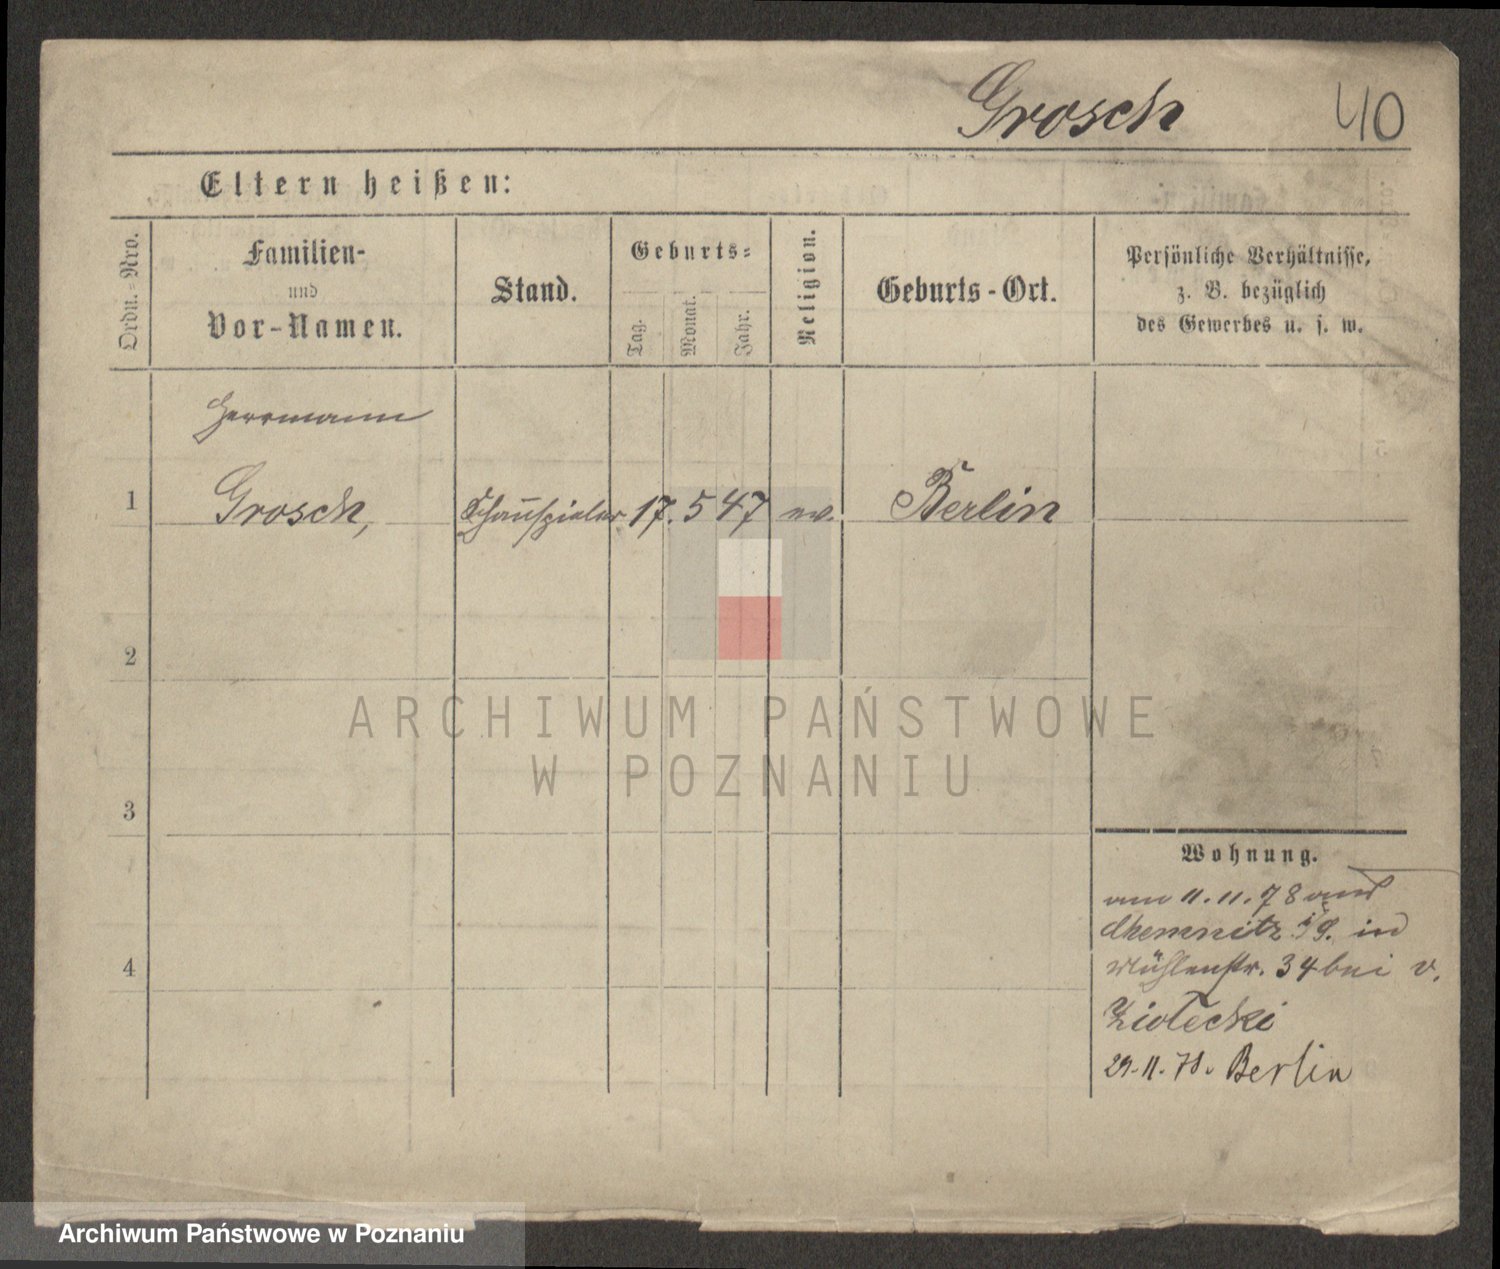 Grosch 40
Eltern heißen:
Ordn.-Nro.
Familien-
und
Vor-Namen.
Stand.
Geburts-
Tag.
Monat.
Jahr.
Religion.
Geburts-Ort.
Persönliche Verhältnisse,
z. B. bezüglich
des Gewerbes u. s. w.
Herrmann
1 Grosch, Schauspieler 17. 5 47 ev. Berlin
2
3
4
ARCHIWUM PAŃSTWOWE
W POZNANIU
Wohnung.
am 11. 11. 78 aus
Chemnitz i/S. in
Mühlenstr. 34 bei v.
Ziołecki
29. 11. 78. Berlin
Archiwum Państwowe w Poznaniu